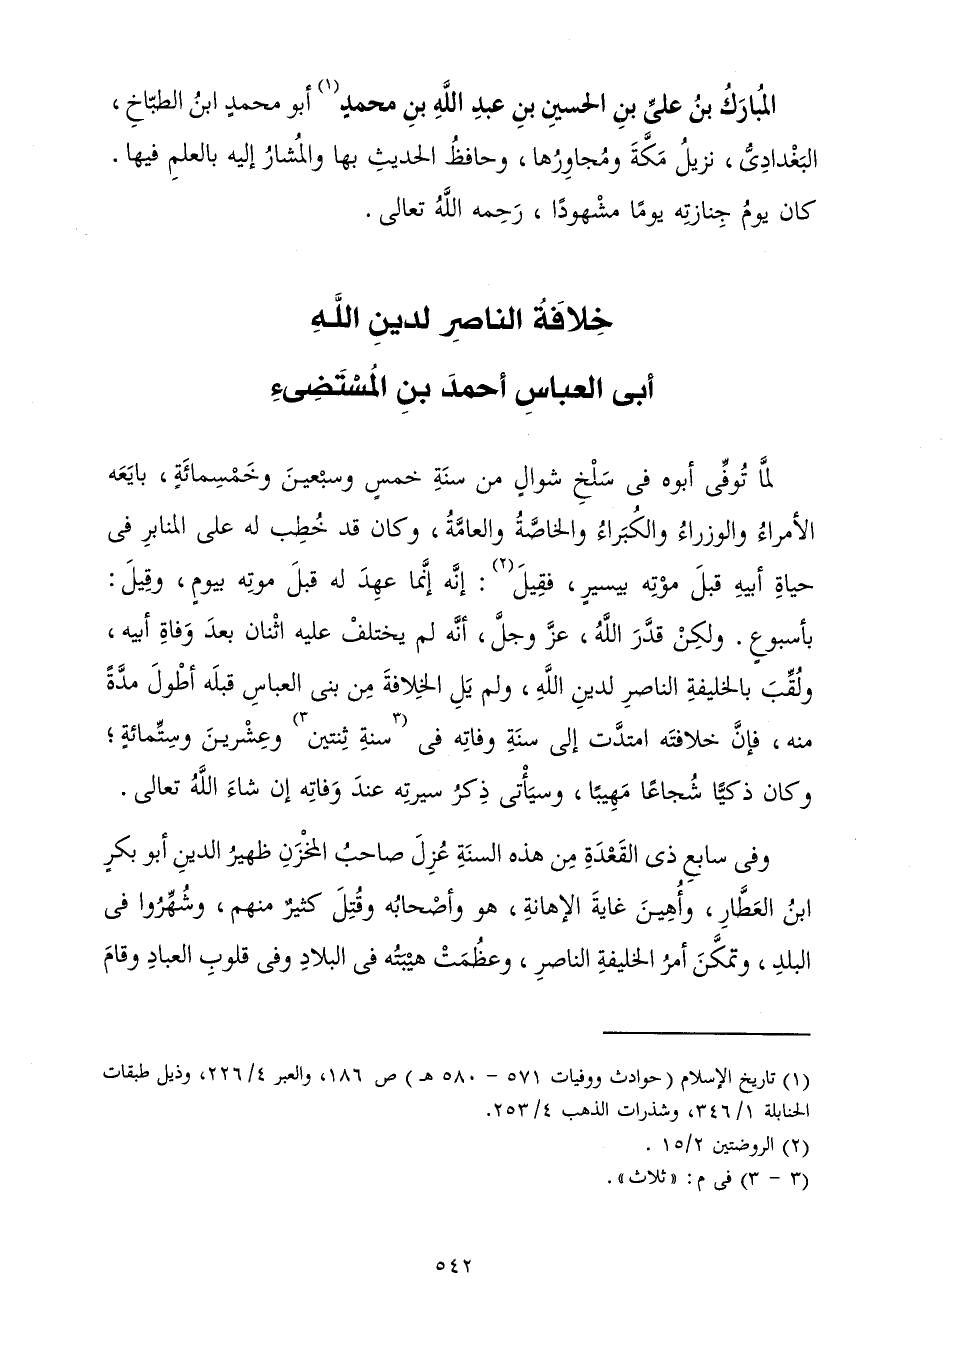 المُبارَكُ بنُ علىِّ بنِ الحسينِ بنِ عبدِ اللَّهِ بنِ محمدٍ(١) أبو محمدٍ ابنُ الطبّاخِ ،
البَغْدادِىُّ ، نزيلُ مَكَّةَ ومُجاوِرُها ، وحافظُ الحديثِ بها والمُشارُ إليه بالعلمِ فيها .
كان يومُ جِنازتِه يومًا مشْهودًا ، رَحِمه اللَّهُ تعالى .
خِلافَةُ الناصرِ لدينِ اللَّهِ
أبى العباسِ أحمدَ بنِ المُسْتَضِىءِ
لمَّا تُوفِّى أبوه فى سَلْخِ شوالٍ من سنَةِ خمسٍ وسبْعينَ وخَمْسِمائَةٍ ، بايَعَه
الأمراءُ والوزراءُ والكُبَراءُ والخاصَّةُ والعامَّةُ ، وكان قد خُطِب له على المنابرِ فى
حياةِ أبيهِ قبلَ موْتِه بيسيرٍ ، فقِيلَ(٢) : إنَّه إنَّما عهِدَ له قبلَ موتِه بيومٍ ، وقِيلَ :
بأسبوعٍ . ولكِنْ قدَّرَ اللَّهُ ، عزَّ وجلَّ ، أنَّه لم يختلفْ عليه اثْنان بعدَ وَفاةِ أبيه ،
ولُقِّبَ بالخليفةِ الناصرِ لدينِ اللَّهِ ، ولم يَلِ الخِلافةَ مِن بنى العباسِ قبلَه أطْولَ مدَّةً
منه ، فإنَّ خلافتَه امتدَّت إلى سنَةِ وفاتِه فى (٣سنةِ ثِنتين٣) وعِشْرينَ وستِّمائةٍ ؛
وكان ذكيًّا شُجاعًا مَهِيبًا ، وسيَأْتى ذِكرُ سيرتِه عندَ وَفاتِه إن شاءَ اللَّهُ تعالى .
وفى سابعِ ذى القَعْدَةِ مِن هذه السنَةِ عُزِلَ صاحبُ المخْزَنِ ظهيرُ الدينِ أبو بكرٍ
ابنُ العَطَّارِ ، وأُهِينَ غايةَ الإهانةِ ، هو وأصْحابُه وقُتِلَ كثيرٌ منهم ، وشُهِّرُوا فى
البلدِ ، وتمكَّنَ أمرُ الخليفةِ الناصرِ ، وعظُمَتْ هيْبَتُه فى البلادِ وفى قلوبِ العبادِ وقامَ
(١) تاريخ الإسلام ( حوادث ووفيات ٥٧١ – ٥٨٠ هـ ) ص ١٨٦، والعبر ٤/ ٢٢٦، وذيل طبقات
الحنابلة ١/ ٣٤٦، وشذرات الذهب ٤/ ٢٥٣.
(٢) الروضتين ١٥/٢ .
(٣ – ٣) فى م : «ثلاث» .
٥٤٢